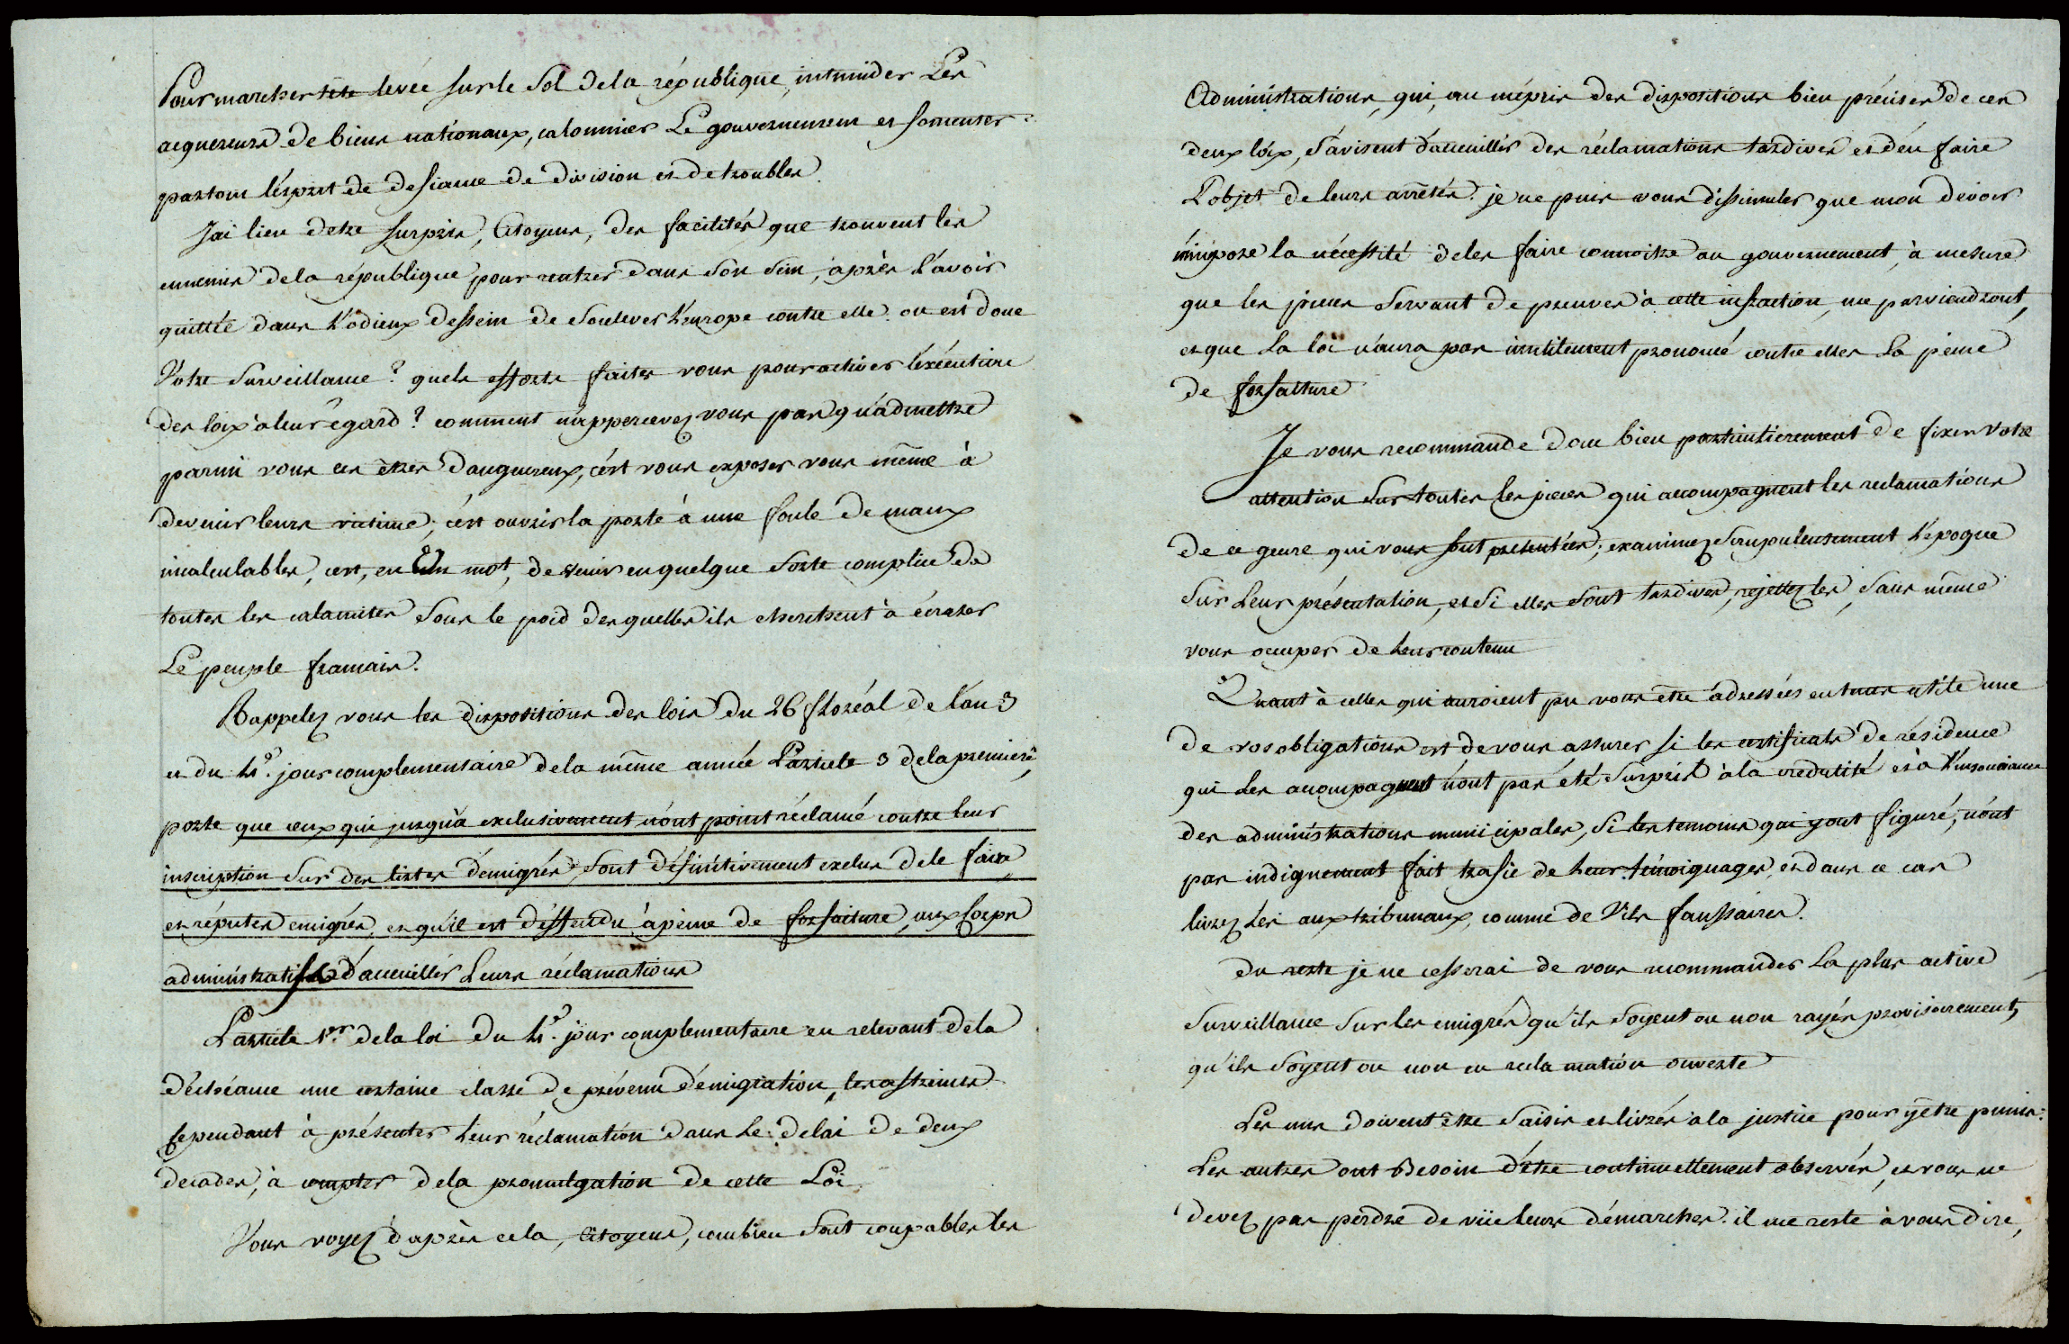 Pour marcher tete levée sur le Sol de la république, intimider Les
acquereurs de biens nationaux, calomnier Le gouvernement et fomenter
partout l'ésprit de defiance de division et de troubles.
J'ai lieu d'etre surpris, Citoyens, des facilités que trouvent les
ennemis de la république pour rentrer dans Son Sein, après L'avoir
quittée dans L'odieux dessein de Soulever L'europe contre elle. ou est donc
Votre Surveillance? quels efforts faites vous pour activer l'éxécution
des loix à leur égard? comment n'appercevez vous pas qu'admettre
parmi vous ces êtres dangereux, c'ést vous exposer vous même à
devenir leurs victime; c'ést ouvrir la porte à une foule de maux
incalculables, cest, en Un mot, devenir en quelque Sorte complice de
toutes les calamites Sous le poid des quelles ils cherchent à écraser
Le peuple francais.
Rappelez vous les dispositions des lois du 26 floréal de l'an 3
et du 4e. jour complementaire de la même année L'article 3 de la premiere,
porte que ceux qui jusqu'à exclusivement n'ont point réclamé contre leur
inscription Sur des listes d'émigrés, Sont définitivement exclus de le faire
et réputés emigrés, et qu'il est déffendu à peine de forfaiture, aux Corps
administratifs d'accueillir Leurs réclamations
L'article 1er. de la loi du 4e. jour complementaire en relevant de la
déchéance une certaine classe de prévenu d'émigration, les astreints
cependant à présenter Leur réclamation dans Le delai de deux
decades, à compter de la promulgation de cette Loi.
Vous voyez d'après cela, Citoyens, combien Sont coupables les
Administrations, qui, au mépris des dispositions bien précises de ces
deux loix, S'avisent d'accueillir des réclamations tardives et d'én faire
L'objet de leurs arrêtés. je ne puis vous dissimuler que mon devoir
m'impose la nécessité de les faire connoitre au gouvernement, à mesure
que les pieces Servant de preuves à cette infraction, me parviendront,
et que La loi n'aura pas inutilement prononcé contre elles La peine
de forfaiture
Je vous recommande donc bien particulierement de fixer votre
attention Sur toutes les pieces qui accompagnent les reclamations
de ce genre qui vous sont presentées; examinez Scrupuleusement L'epoque
Sur Leur présentation, et Si elles Sont tardives, rejettez les, Sans même
vous occuper de Leur contenu
Quant à celles qui auroient pu vous être adressées en tems utile une
de vos obligations est de vous assurer si les certificats de résidence
qui Les acompagnent n'ont pas été Surpris à la credulité et à L'insouciance
des administrations municipales, Si les temoins qui y ont figuré, n'ont
pas indignement fait trafic de Leur témoignages, et dans ce cas
livrez Les aux tribunaux, comme de Vils faussaires.
Du reste je ne cesserai de vous recommander La plus active
Surveillance Sur les emigrés qu'ils Soyent ou non rayés provisoirement,
qu'ils Soyent ou non en reclamation ouverte
Les uns doivent être Saisis et livrés à la justice pour y être punis:
Les autres ont Besoin d'être continuellement observés, et vous ne
devez pas perdre de vüe leurs démarches. il me reste à vous dire,